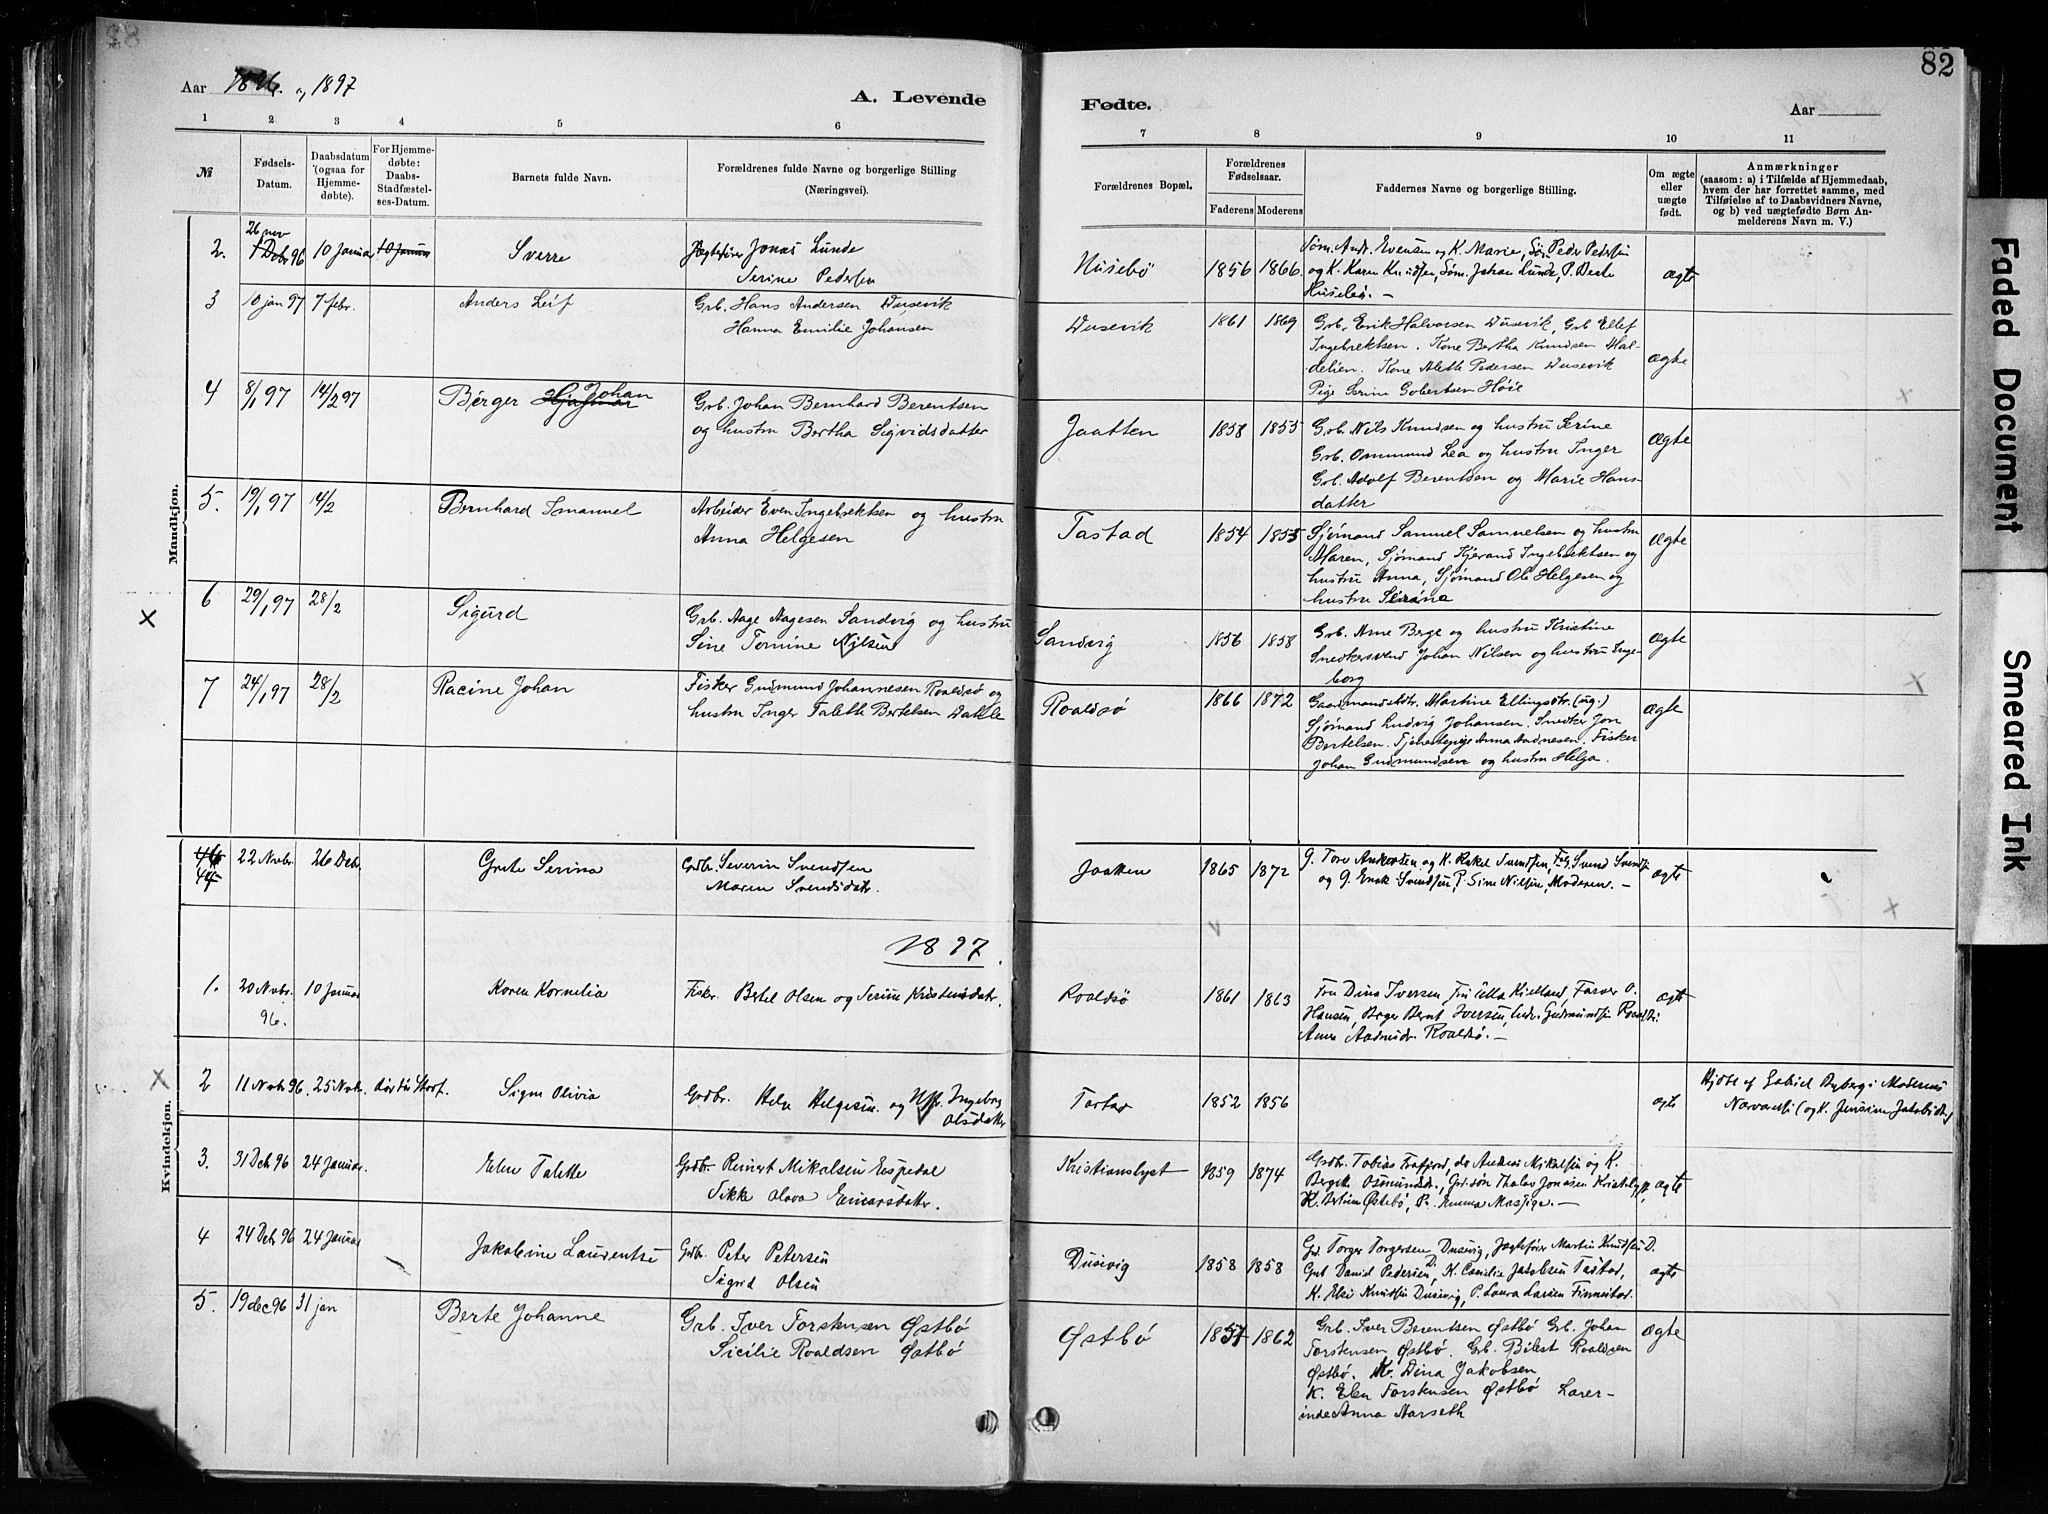 82
Aar 1896 og 1897
A. Levende
Fødte.
Aar
1 2 3 4 5 6 7 8 9 10 11
№
Fødsels-Datum.
Daabsdatum (ogsaa for Hjemme-døbte).
For Hjemme-døbte: Daabs-Stadfæstel-ses-Datum.
Barnets fulde Navn.
Forældrenes fulde Navne og borgerlige Stilling (Næringsvei).
Forældrenes Bopæl.
Forældrenes Fødselsaar.
Faderens Moderens
Faddernes Navne og borgerlige Stilling.
Om ægte eller uægte født.
Anmærkninger
(saasom: a) i Tilfælde af Hjemmedaab,
hvem der har forrettet samme, med
Tilføielse af to Daabsvidners Navne,
og b) ved uægtefødte Børn An-
melderens Navn m. V.)
Mandkjøn.
2. 26 nov 1 Dcb 96 10 Januar 10 Januar Sverre Jægtefører Jonas Lunde
Serine Pedersen
Husebö 1856 1866
Søm. Andr. Evensen og K. Marie, Sø. Peder Pedersen
og K. Karen Knudsen, Søm. Johan Lunde, P. Berte
Husebö. –
ægte
3 10 jan 97 7 febr. Anders Leif Grb. Hans Andersen Dusevik
Hanna Emilie Johansen
Dusevik 1861 1869
Grb. Erik Halvorsen Dusevik, Grb Ellef
Ingebrektsen. Kone Bertha Knudsen Mal-
delien. Kone Alette Pedersen Dusevik
Pige Serine Gobertsen Höie
ægte
4 8/1 97 14/2 97 Børger Hjalmar Johan Grb. Johan Bernhard Berentsen
og hustru Bertha Sigvidsdatter
Jaatten 1858 1855
Grb. Nils Knudsen og hustru Serine
Grb. Ommund Lea og hustru Inger
Grb. Adolf Berentsen og Marie Hans-
datter
ægte
5. 19/1 97 14/2 Bernhard Imanuel Arbeider Even Ingebrektsen og hustru
Anna Helgesen
Tastad 1854 1855
Sjømand Samuel Samuelsen og hustru
Maren, Sjømand Kjerand Ingebrektsen og
hustru Anna, Sjømand Ole Helgesen og
hustru Serina
ægte
6 29/1 97 28/2 Sigurd Grb. Aage Aagesen Sandvig og hustru
Sine Tomine Nilsen
Sandvig 1856 1858
Grb. Arne Berge og hustru Kristine
Snedkersvend Johan Nilsen og hustru Inge-
borg
ægte
7 24/1 97 28/2 Racine Johan Fisker Gudmund Johannesen Roaldsø og
hustru Inger Talette Bertelsen Datle
Roaldsø 1866 1872
Gaardmandsdtr. Martine Ellingsdtr. (ug.)
Sjømand Ludvig Johansen. Snedker Jon
Bertelsen. Tjenestepige Anna Aadnesen. Fisker
Johan Gudmundsen og hustru Helga.
ægte
Kvindekjøn.
44 22 Nvbr. 26 Dcbr. Grete Serina Grdbr. Severin Svendsen
Maren Svendsdtr.
Jaatten 1865 1872
G. Tore Andersen og K. Rakel Svendsen, Svend Svends.
og G. Enok Svendsen, P. Sine Nilsen, Moderen. –
ægte
1897.
1. 20 Nvbr. 96. 10 Januar Karen Kornelia Fisker Bertel Olsen og Serine Kristensdatr.
Roaldsø 1861 1863
Fru Dina Iversen, Fru Ulla Kielland, Farver O.
Hansen, Bager Bernt Iversen, Gudmundsen Roaldsø.
Anna Aadnesdtr. Roaldsø. –
ægte
2 11 Nvbr 96. 25 Nvbr. Signe Olivia Grdbr. Helge Helgesen og Ingeborg
Olsdatter
Tastad 1852 1856
ægte
Hjdbt af Gabriel Byberg i Moderens
Nærværelse (og K. Jensine Jakobsdtr)
3. 31 Dcb 96 24 Januar. Elen Talette Grdbr. Reinert Mikalsen Espedal
Sikke Olava Einarsdatter.
Kristianslyst 1859 1874
Grdbr. Tobias Frafjord, do Andreas Mikalsen og K.
Bergitte Osmundsdtr., Grd.søn Thalav Jonassen Kristlyst,
K. Bertine Østebö, P. Emma Massige. –
ægte
4 24 Dcb 96 24 Januar Jakobine Laurentse Grdbr. Peter Petersen
Sigrid Olsen
Dusevig 1858 1858
Gr. Torger Torgersen Dusevig, Jægtefører Martin Knudsen D.
Gut Daniel Pedersen D., K. Cecilie Jakobsen Tastad,
K. Eli Knudsen Dusevig, P. Laura Larsen Finnestad.
ægte
5. 19 dec 96 31 jan Berte Johanne Grb. Iver Torstensen Østbö
Sicilie Roaldsen Østbö
Østbö 1857 1862
Grb. Iver Berentsen Østbö Grb. Johan
Torstensen Østbö. Grb. Roaldsen
Østbö. K. Dina Jakobsen
K. Elen Torstensen Østbö Lærer-
inde Anna Aarseth
ægte
Faded Document
Smeared Ink